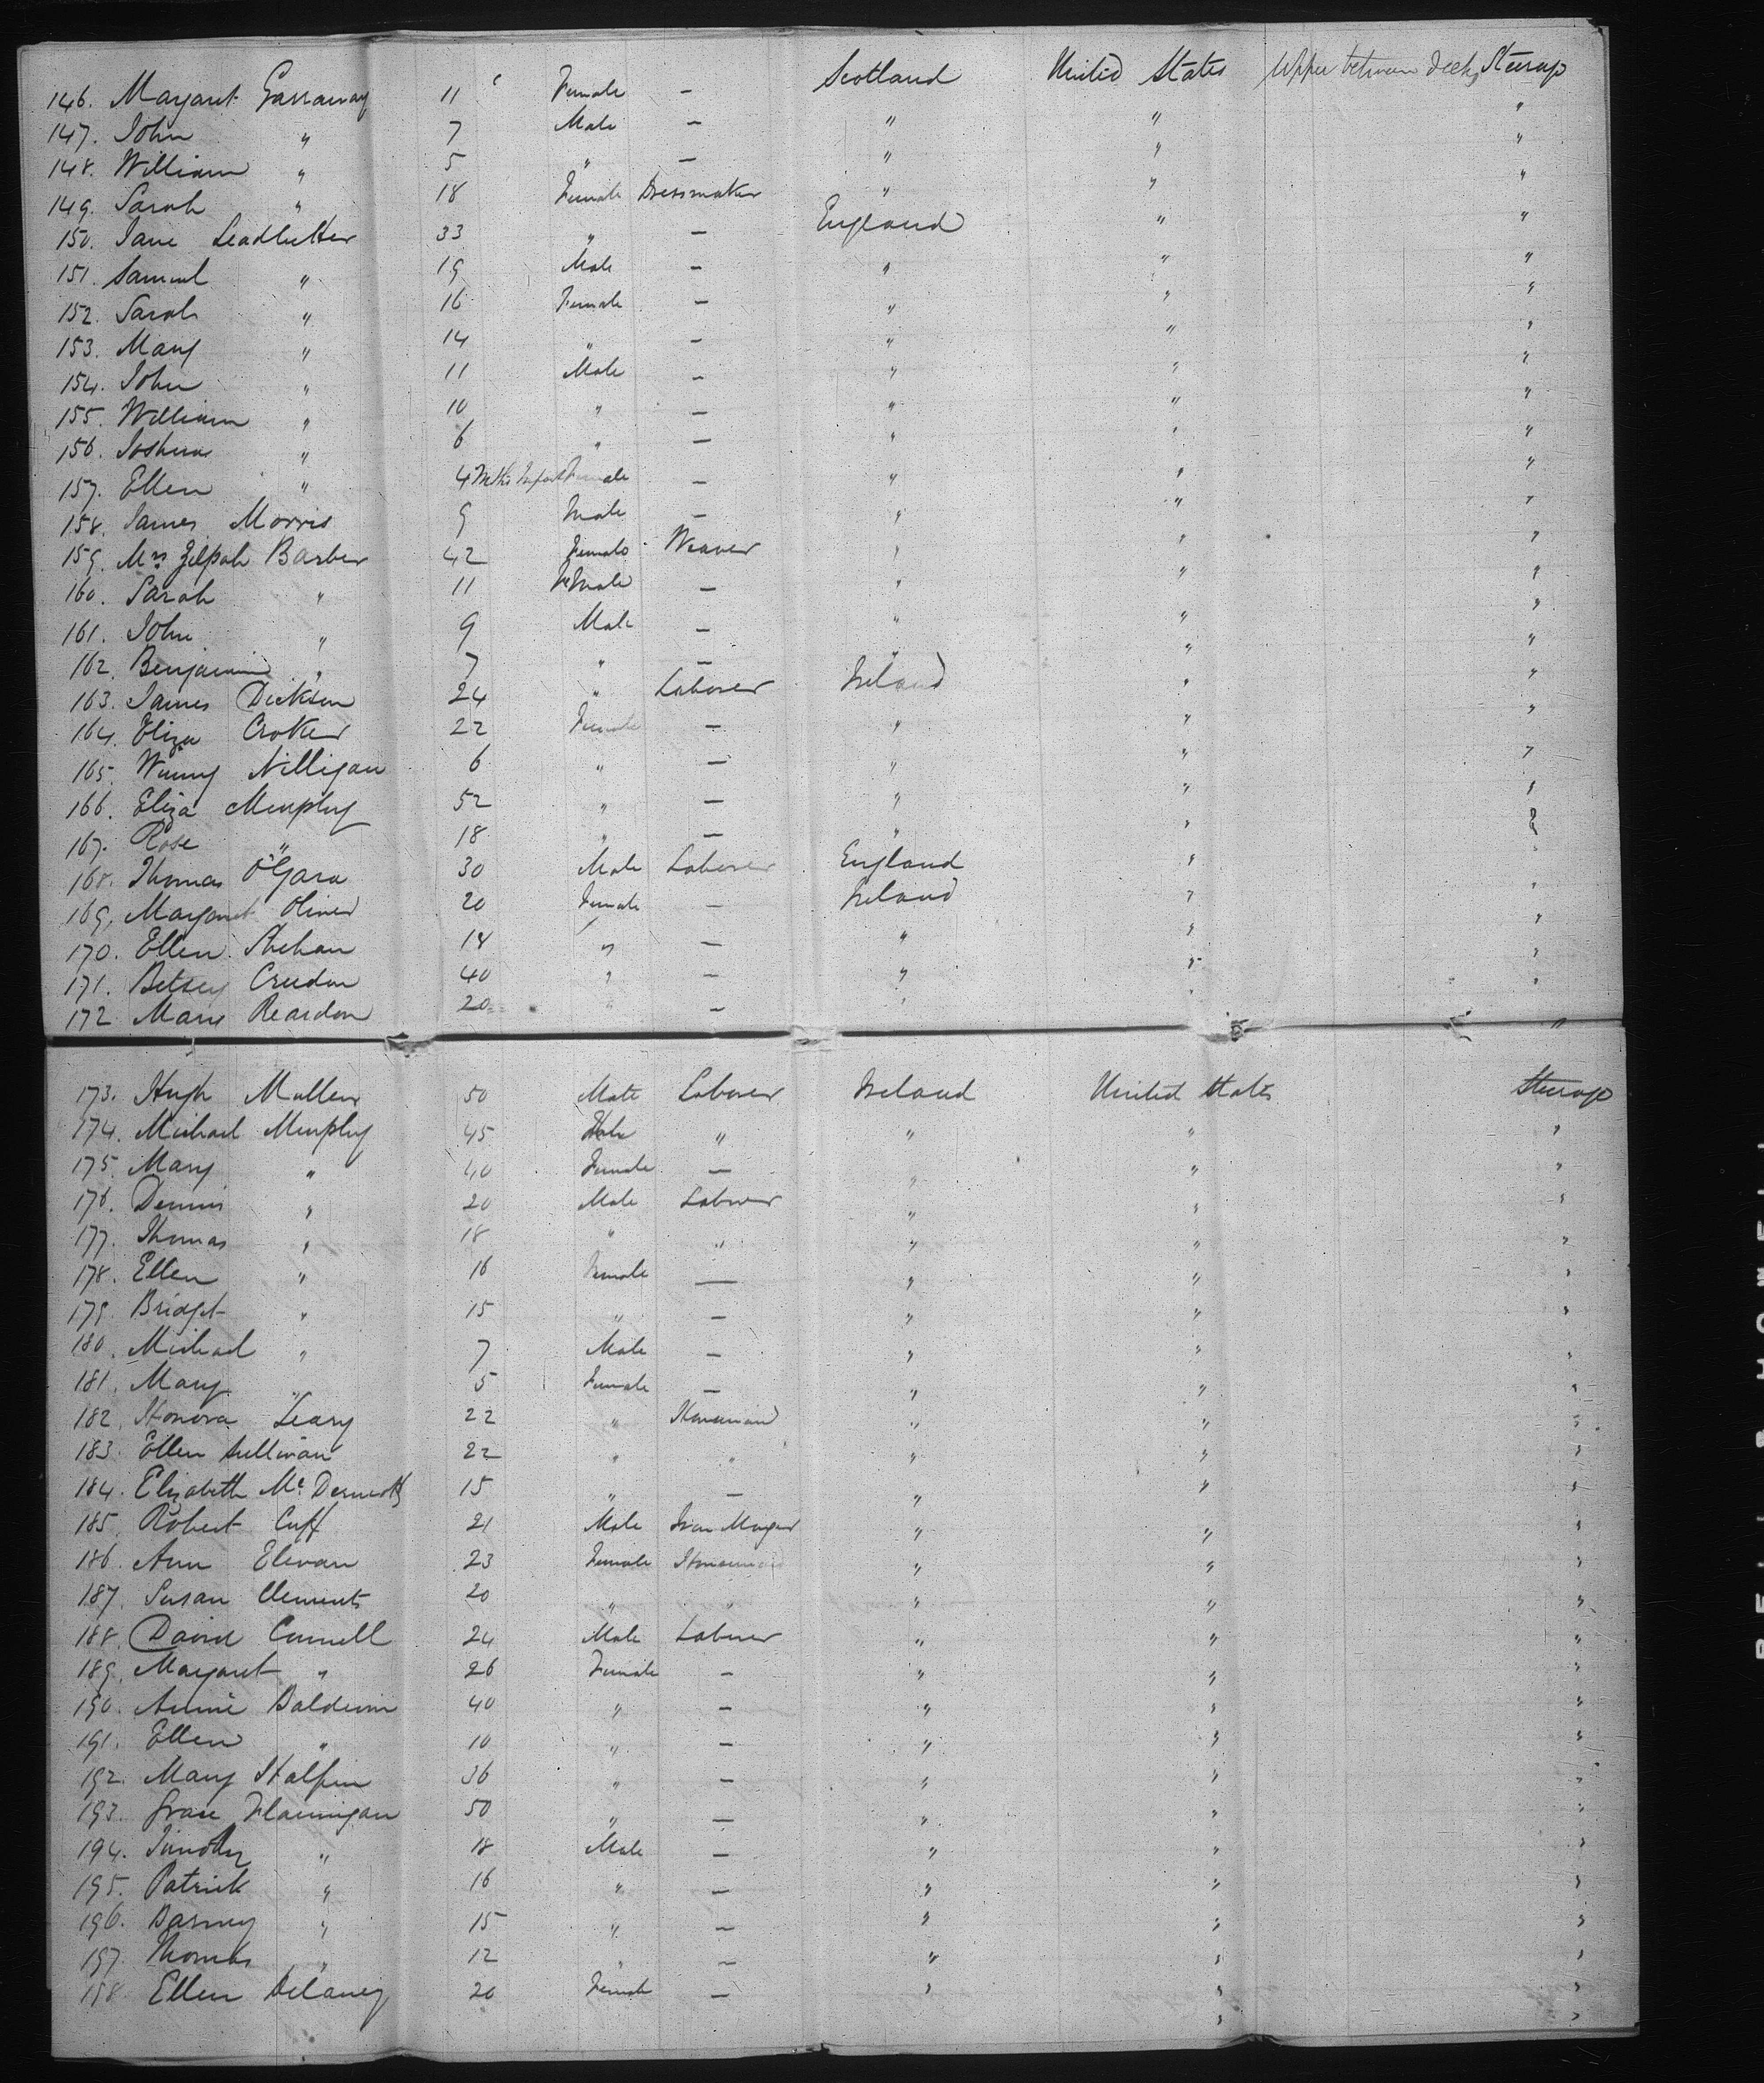 146. Margaret Garraway 11 Female — Scotland United States Upper between decks Steerage
147. John " 7 Male — " " "
148. William " 5 " — " " "
149. Sarah " 18 Female Dressmaker " " "
150. Jane Leadbetter 33 " — England " "
151. Samuel " 19 Male — " " "
152. Sarah " 16 Female — " " "
153. Mary " 14 " — " " "
154. John " 11 Male — " " "
155. William " 10 " — " " "
156. Joshua " 6 " — " " "
157. Ellen " 4 Mths Infant Female — " " "
158. James Morris 9 Male — " " "
159. Mrs Zilpah Barber 42 Female Weaver " " "
160. Sarah " 11 Female — " " "
161. John " 9 Male — " " "
162. Benjamin " 7 " — " " "
163. James Dickson 24 " Laborer Ireland " "
164. Eliza Croker 22 Female — " " "
165. Winny Nilligan 6 " — " " "
166. Eliza Murphy 52 " — " " "
167. Rose " 18 " — " " "
168. Thomas O'Gara 30 Male Laborer England " "
169. Margaret Oliver 20 Female — Ireland " "
170. Ellen Shehan 18 " — " " "
171. Betsey Creedon 40 " — " " "
172 Mary Reardon 20 " — " " "
173. Hugh Mullen 50 Male Laborer Ireland United States Steerage
174. Michael Murphy 45 Male " " " "
175. Mary " 40 Female — " " "
176. Dennis " 20 Male Laborer " " "
177. Thomas " 18 " " " " "
178. Ellen " 16 Female — " " "
179. Bridget " 15 " — " " "
180. Michael " 7 Male — " " "
181. Mary " 5 Female — " " "
182. Honora Leary 22 " Housemaid " " "
183. Ellen Sullivan 22 " " " " "
184. Elizabeth McDermott 15 " — " " "
185. Robert Cuff 21 Male Iron Monger " " "
186. Ann Elevan 23 Female Housemaid " " "
187. Susan Clements 20 " " " " "
188. David Connell 24 Male Laborer " " "
189. Margaret " 26 Female — " " "
190. Annie Baldwin 40 " — " " "
191. Ellen " 10 " — " " "
192. Mary Halpin 36 " — " " "
193. Grace Flannigan 50 " — " " "
194. Timothy " 18 Male — " " "
195. Patrick " 16 " — " " "
196. Barney " 15 " — " " "
197. Thomas " 12 " — " " "
198. Ellen Delaney 20 Female — " " "